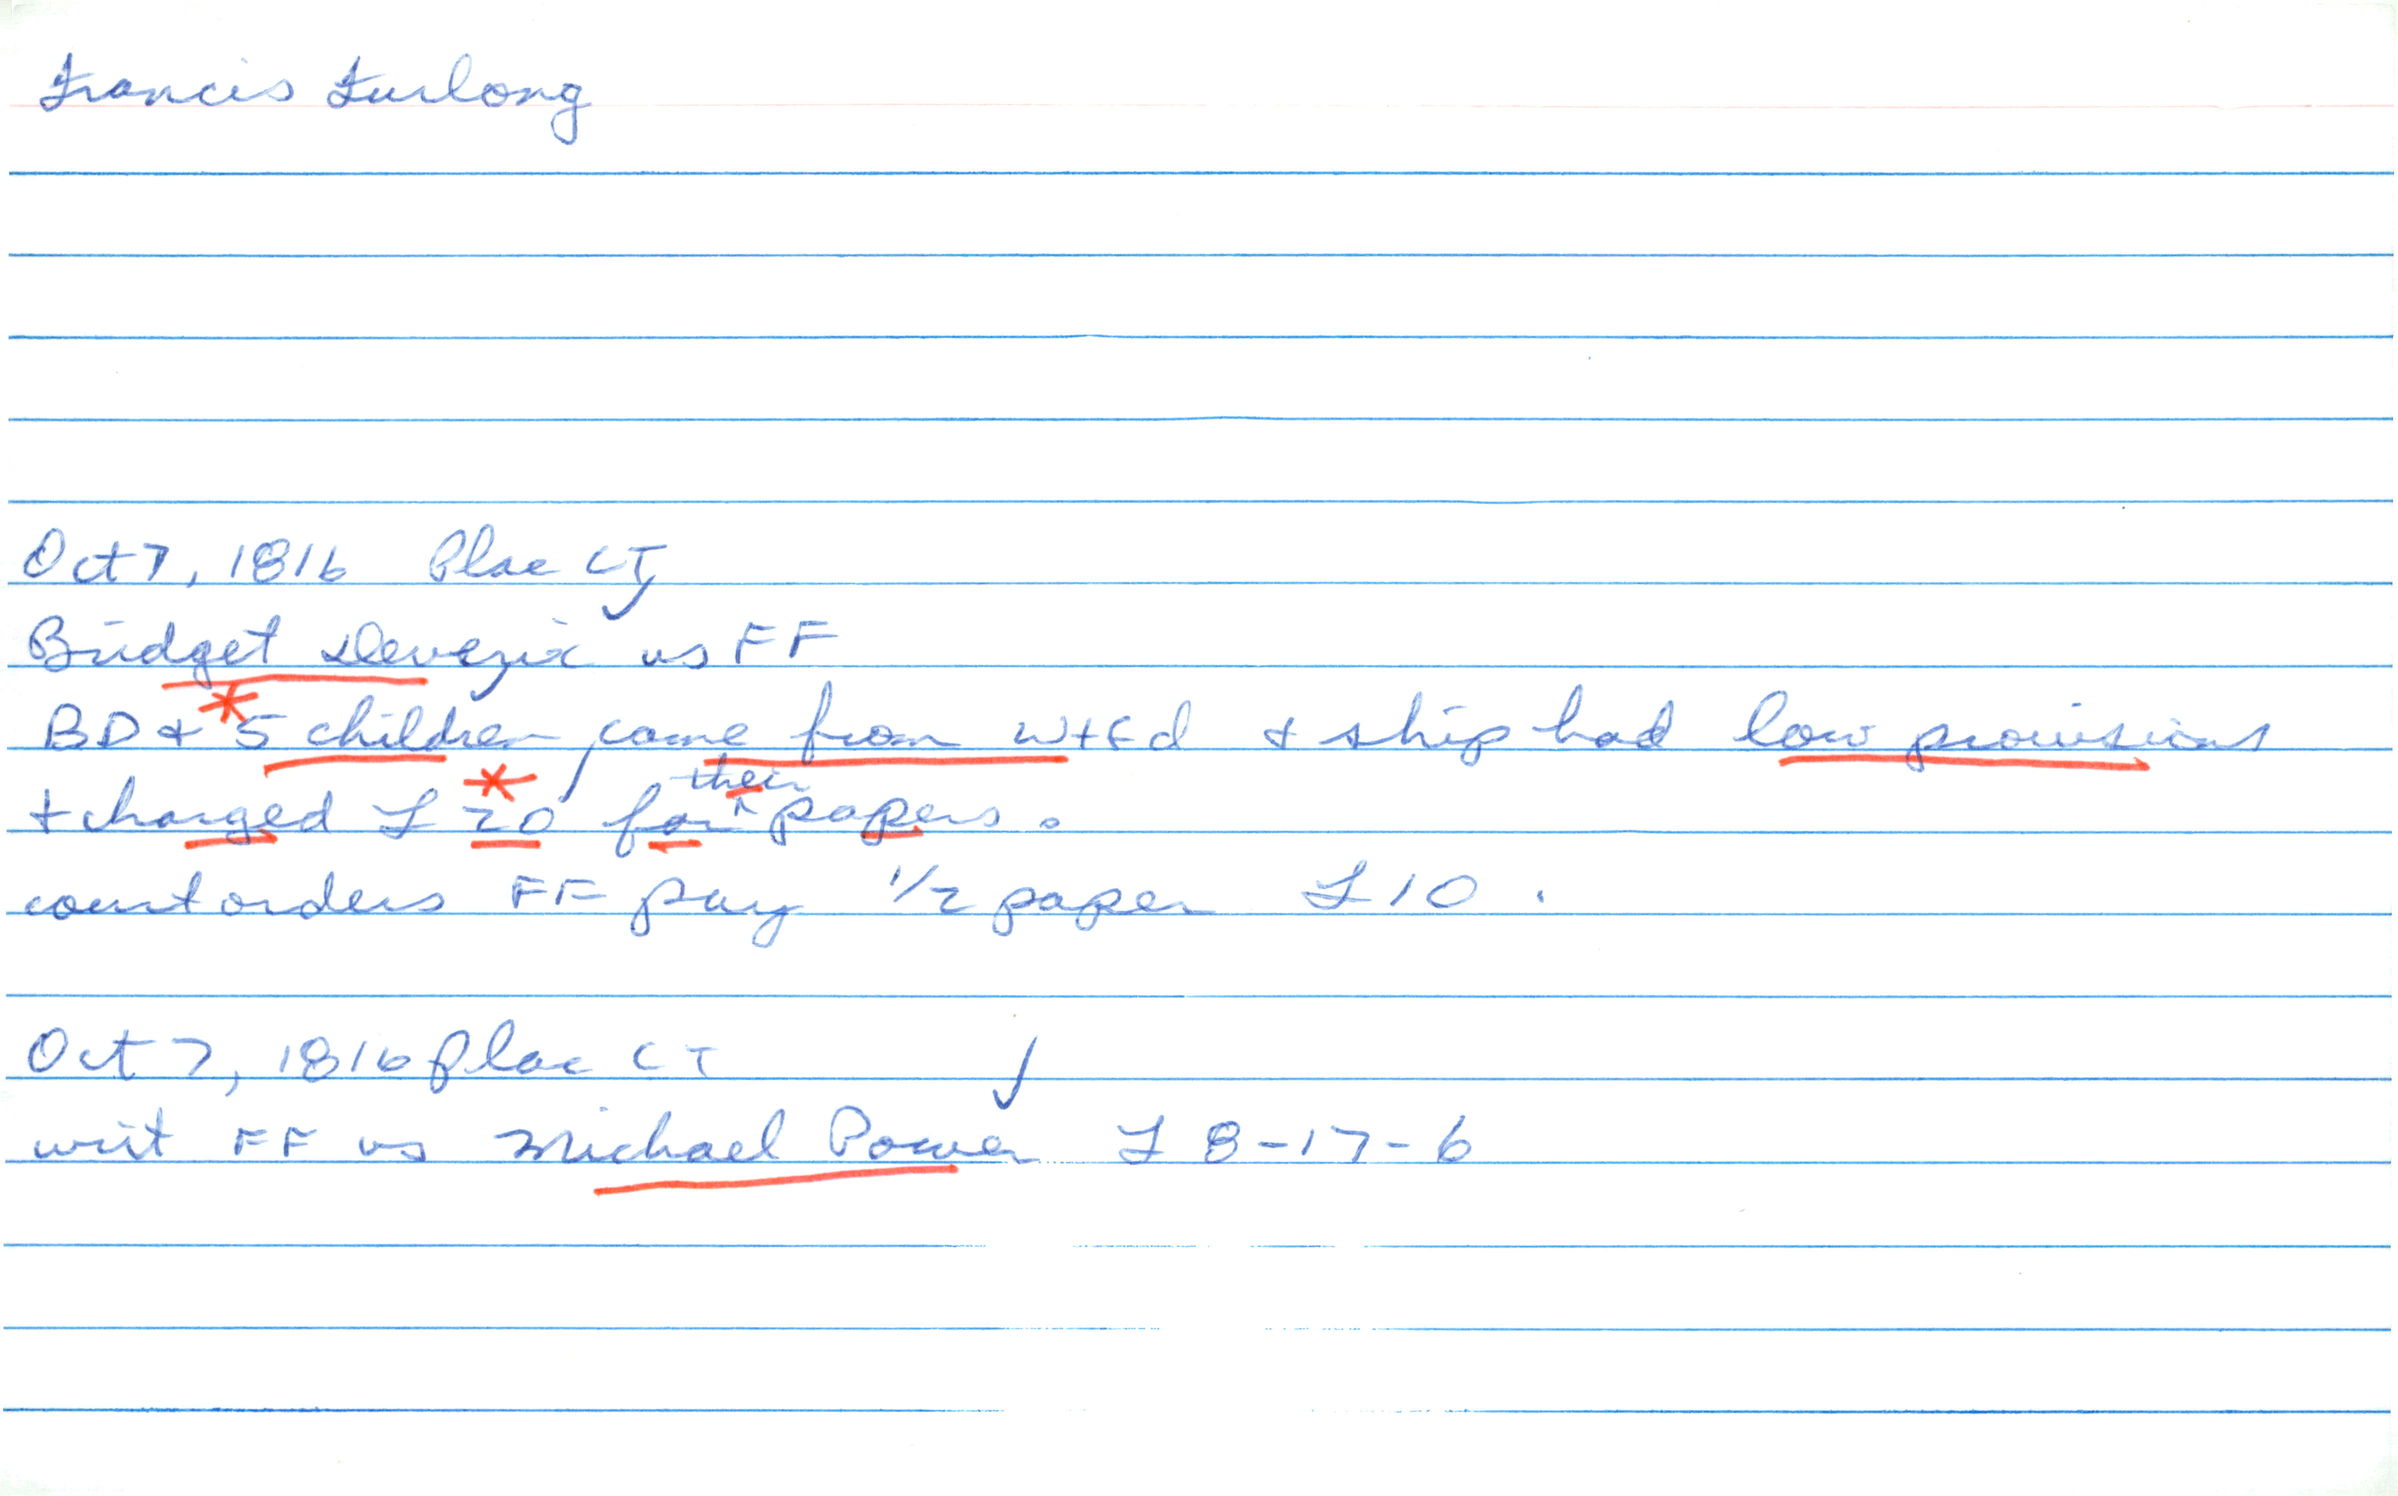 Francis Furlong
Oct 7, 1816 Plac CT
Bridget Deverix vs FF
BD + 5 children came from Wtfd + ship had low provisions
+ charged £ 20 for their papers.
court orders FF pay 1/2 paper £ 10.
Oct 7, 1816 Plac CT
writ FF vs Michael Power £ 8-17-6